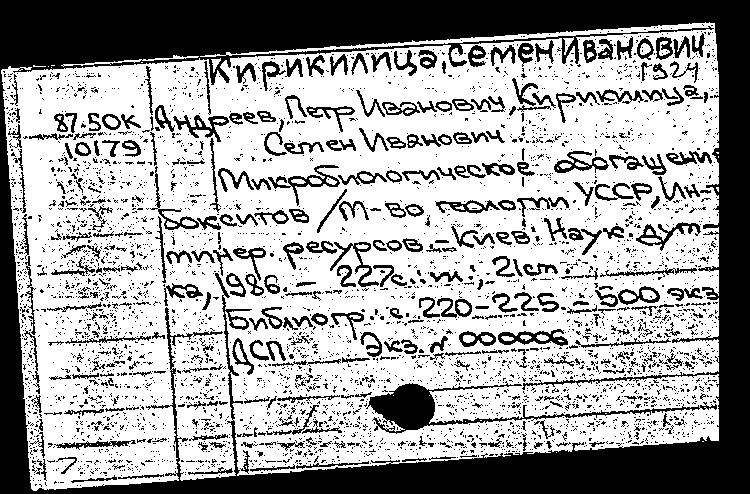 Кирикилица, Семен Иванович.
1924
87.50К Андреев, Петр Иванович, Кирикилица,
10179 Семен Иванович.
Микробиологическое обогащение
бокситов / М-во геологии УССР, Ин-т
минер. ресурсов. – Киев: Наук. дум-
ка, 1986. – 227 с.: ил.; 21 см.
Библиогр.: с. 220-225. – 500 экз
ДСП. Экз. № 000006.